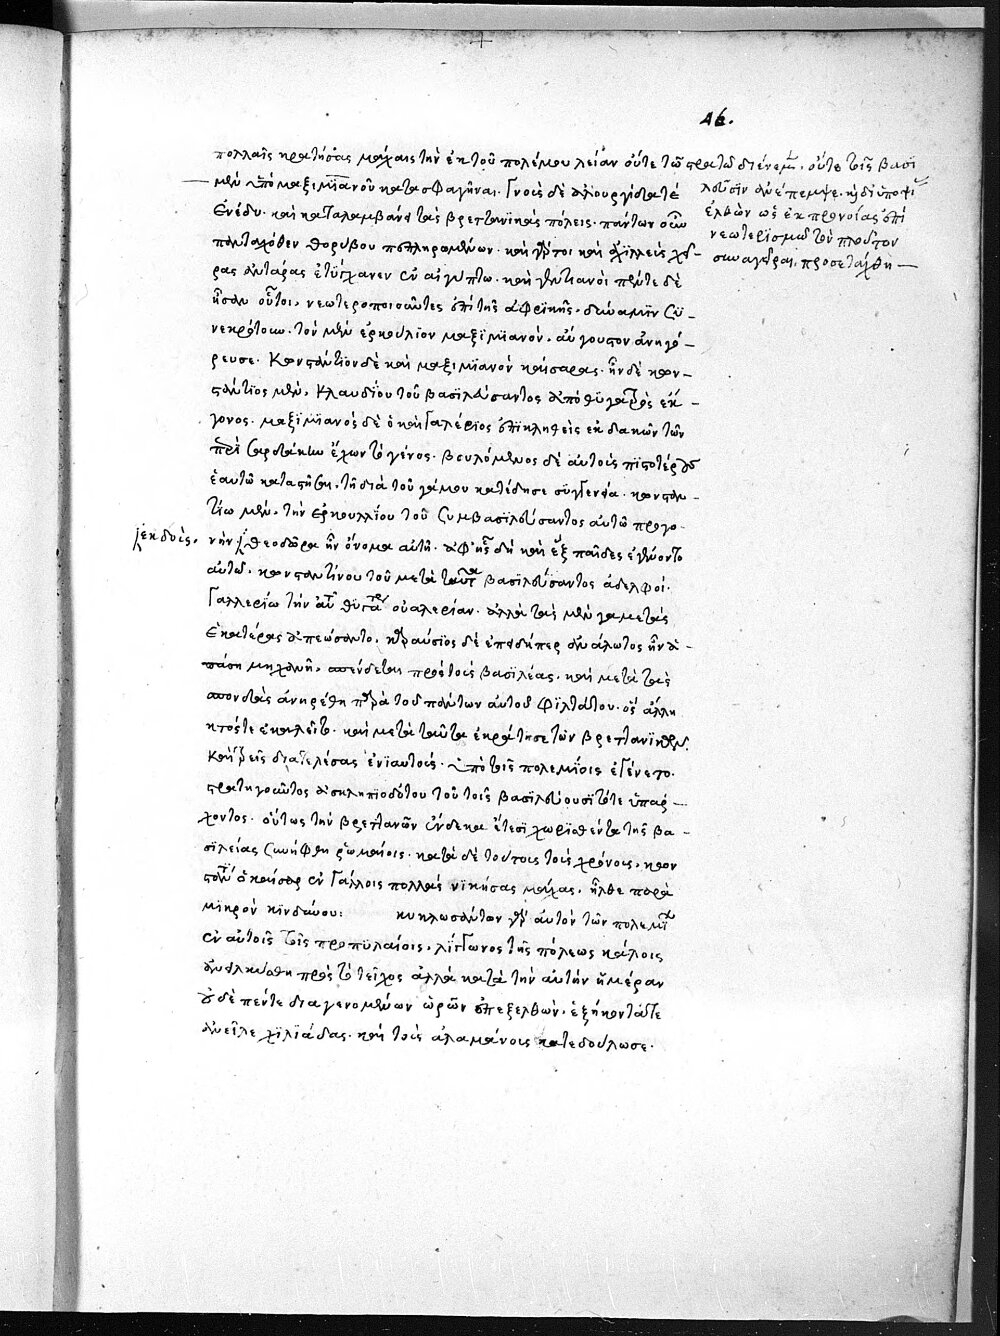 46.
πολλαῖς κρατήσας μάχαις τὴν ἐκ τοῦ πολέμου λείαν οὔτε τῷ στρατῷ διένειμεν, οὔτε τοῖς βασι
λεῦσιν ἀνέπεμψε. καὶ δι' ὑποψίαν
ἐλθὼν ὡς ἐκ προνοίας ἐπὶ
νεωτερισμῷ τὸν πλοῦτον
συναγεῖραι, προσετάχθη
μὲν ὑπὸ μαξιμιανοῦ κατασφαγῆναι. γνοὺς δὲ ἁλουργίδα τέ
ἐνέδυ. καὶ καταλαμβάνει τὰς βρεττανικὰς πόλεις. πάντων οὖν
πανταχόθεν θορύβου πεπληρωμένων. καὶ γάρτοι καὶ ἀχιλλεὺς χεῖ-
ρας ἀντάρας ἐτύγχανεν ἐν αἰγύπτω. καὶ γεντιανοὶ πέντε δὲ
ἦσαν οὗτοι, νεωτεροποιοῦντες ἐπὶ τῆς ἀφρικῆς. δύναμιν συ-
νεκρότουν. τὸν μὲν ἑρκούλιον μαξιμιανὸν, αὔγουστον ἀνηγό-
ρευσε. κωνστάντιον δὲ καὶ μαξιμιανὸν καίσαρας. ἦν δὲ κων-
στάντιος μὲν, κλαυδίου τοῦ βασιλεύσαντος ἀπὸ θυγατρὸς ἔκ-
γονος. μαξιμιανὸς δὲ ὁ καὶ γαλέριος ἐπικληθεὶς ἐκ δακῶν τῶν
περὶ σαρδάκιν ἔχων τὸ γένος. βουλόμενος δὲ αὐτοὺς πιστοτέρους
ἑαυτῷ καταστῆσαι, τῇ διὰ τοῦ γάμου κατέδησε συγγενεία. κωνσταν-
τίω μὲν, τὴν ἑρκουλλίου τοῦ συμβασιλεύσαντος αὐτῶ προγο-
ἐκδοὺς.
νὴν θεοδώρα ἦν ὄνομα αὐτῆ. ἀφ' ἧς δὴ καὶ ἓξ παῖδες ἐγένοντο
αὐτῶ. κωνσταντίνου τοῦ μετὰ ταῦτα βασιλεύσαντος ἀδελφοί.
γαλλερίω τὴν αὐτοῦ θυγατέρα οὐαλερίαν. ἀλλὰ τὰς μὲν γαμετὰς
ἑκατέρας ἀπεώσαντο. καραύσιος δὲ ἐπειδήπερ ἀνάλωτος ἦν ἁ-
πάση μηχανῆ. σπένδεται πρὸς τοὺς βασιλέας. καὶ μετὰ τὰς
σπονδὰς ἀνηρέθη παρὰ τοῦ πάντων αὐτοῦ φιλτάτου. ὃς ἄλλη
κτός τε ἐκαλεῖτο. καὶ μετὰ ταῦτα ἐκράτησε τῶν βρεττανικῶν.
καὶ τρεῖς διατελέσας ἐνιαυτούς. ὑπὸ τοῖς πολεμίοις ἐγένετο.
στρατηγοῦντος ἀσκληπιοδότου τοῦ τοῖς βασιλεύουσι τότε ὑπάρ-
χοντος. οὕτως τὴν βρεττανῶν ἕνδεκα ἔτεσι χωρισθέντα τῆς βα-
σιλείας συνήφθη ῥωμαίοις. κατὰ δὲ τούτους τοὺς χρόνους, κων
στάντιος ὁ καῖσαρ ἐν γάλλοις πολλὰς νικήσας μάχας, ἦλθε παρὰ
μικρὸν κινδύνου: κυκλωσάντων γὰρ αὐτὸν τῶν πολεμίων
ἐν αὐτοῖς τοῖς προπυλαίοις λίγγωνος τῆς πόλεως κάλοις
ἀνελκύσθη πρὸς τὸ τεῖχος ἀλλὰ κατὰ τὴν αὐτὴν ἡμέραν
οὐδὲ πέντε διαγενομένων ὡρῶν ἐπεξελθὼν, ἑξήκοντά τε
ἀνεῖλε χιλιάδας. καὶ τοὺς ἀλαμάνους κατεδούλωσε.